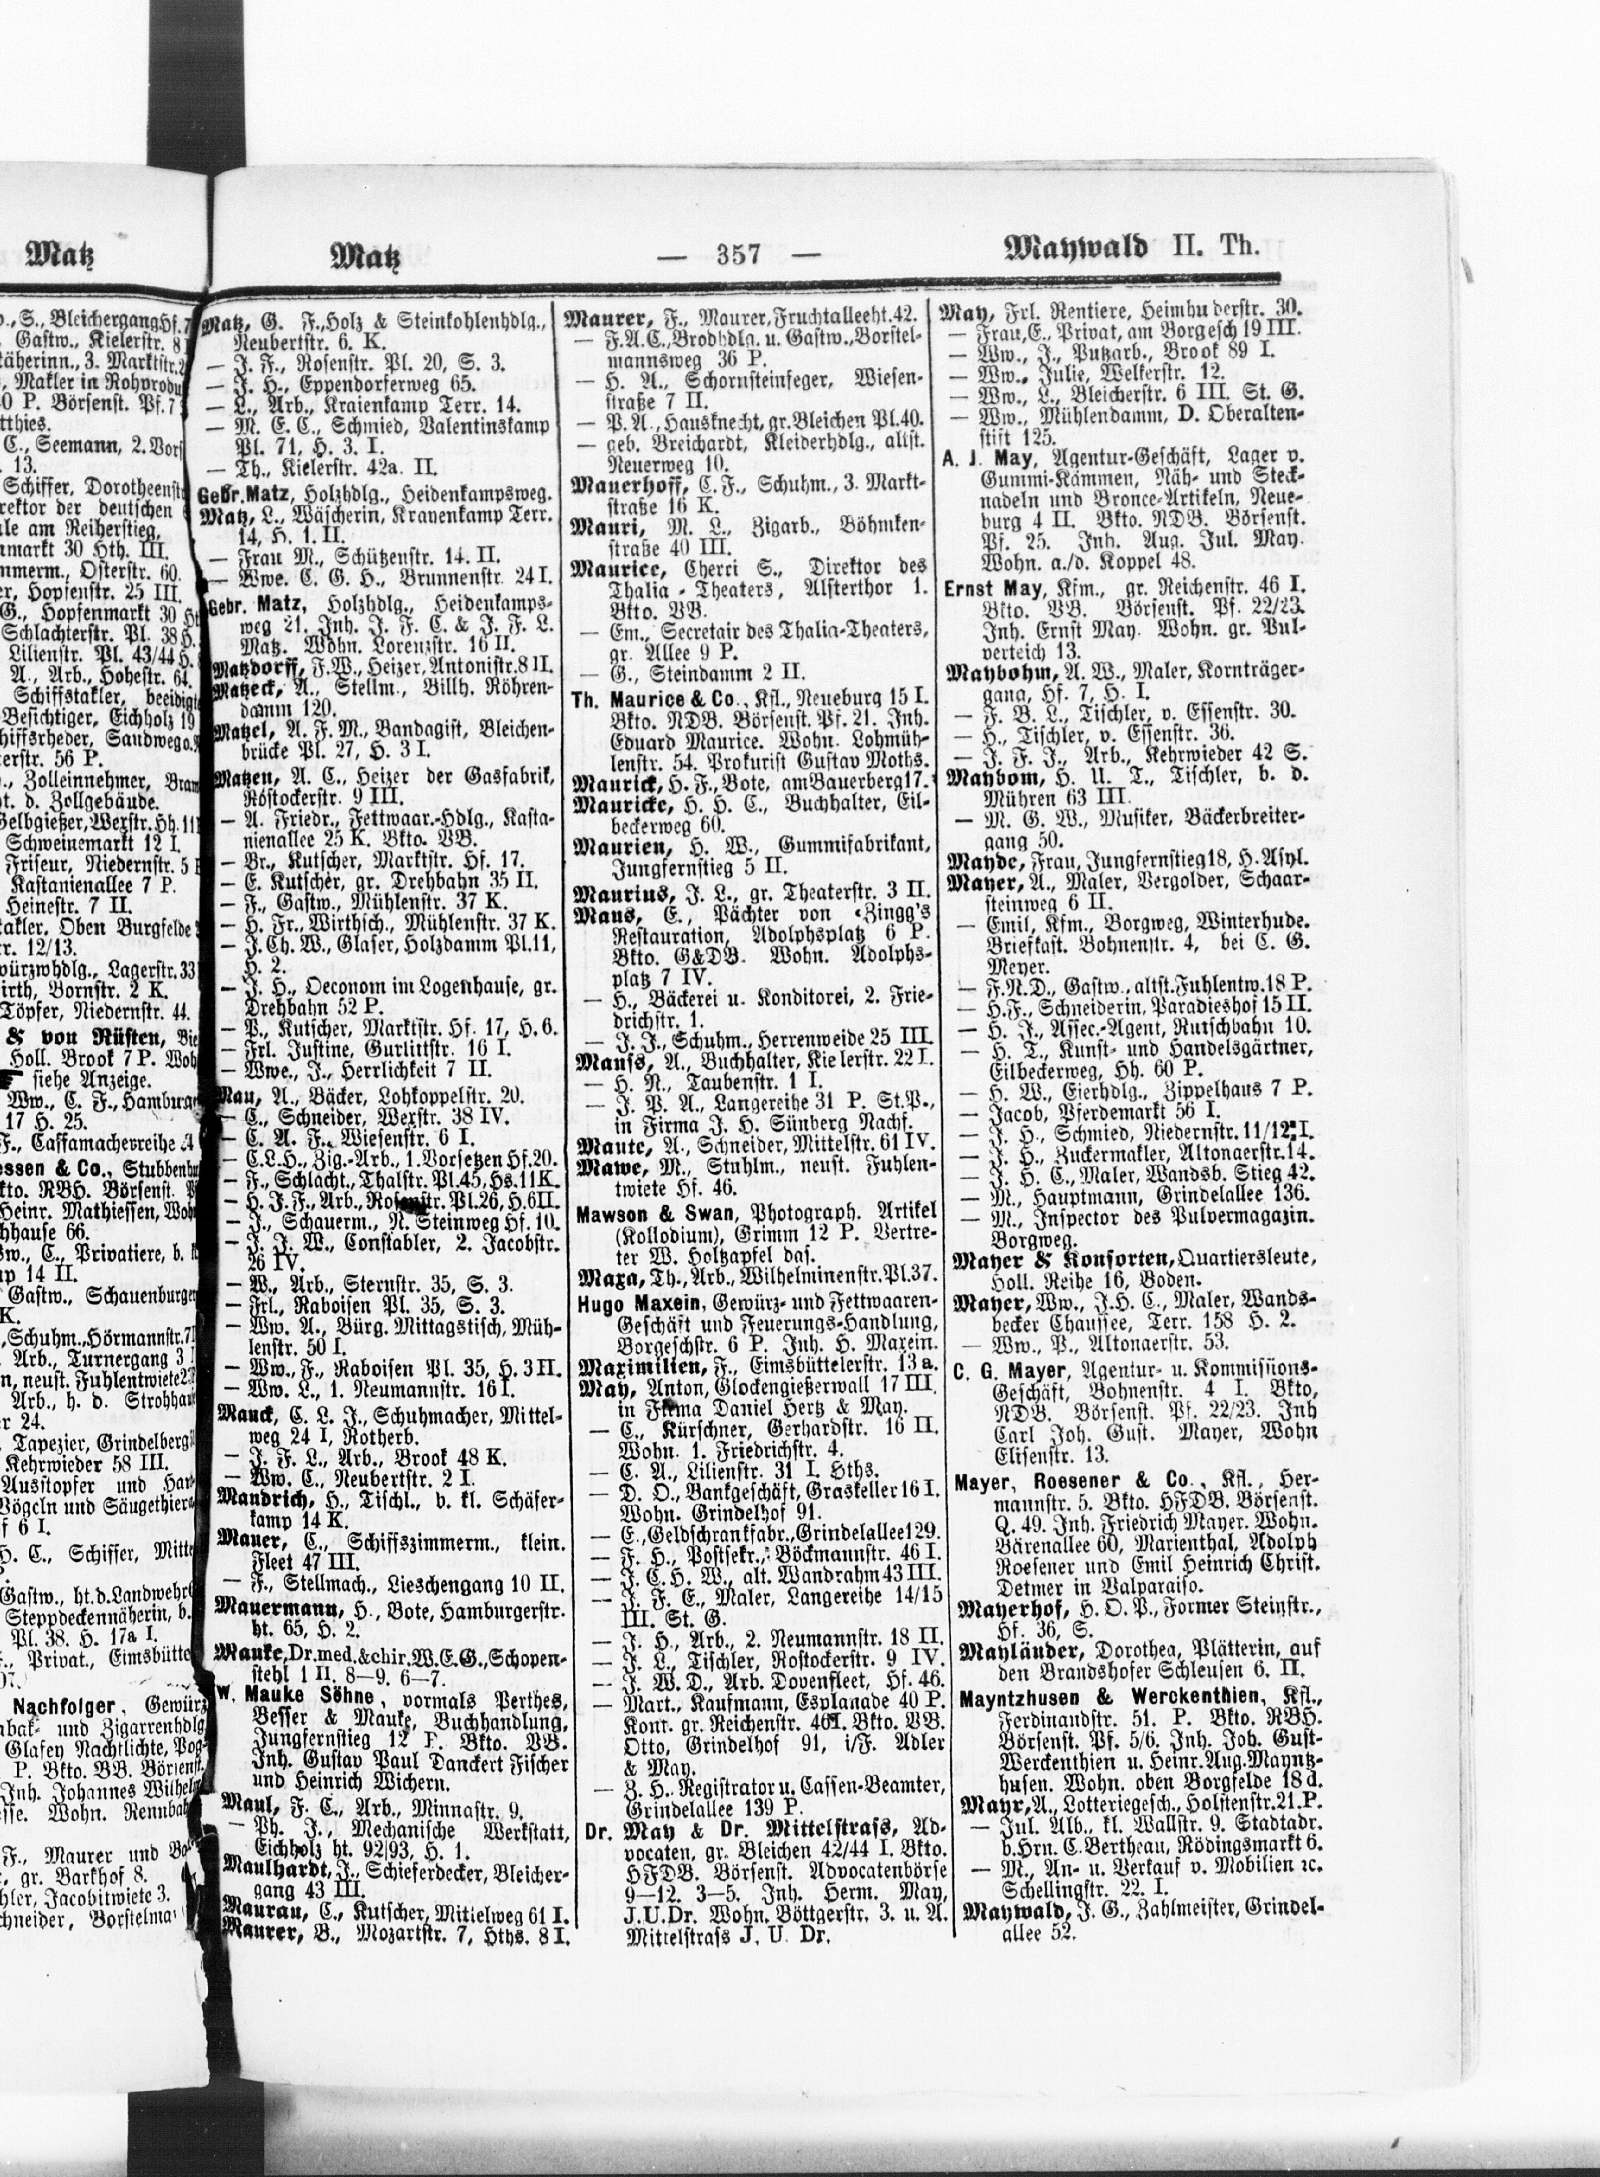 Matz
Matz
— 357 —
Maywald II. Th.
S., Bleichergang Hf. 7
Gastw., Kielerstr. 8
3. Marktstr. 2
Makler in Rohprodu
P. Börsenst. Pf. 7
tthies.
C., Seemann, 2. Vors
13.
Schiffer, Dorotheenst
rektor der deutschen
le am Reiherstieg,
nmarkt 30 Hth. III.
mmerm., Osterstr. 60.
r, Hopfenstr. 25 III.
G., Hopfenmarkt 30 Ht
Schlachterstr. Pl. 38 H.
Lilienstr. Pl. 43/44 H.
A., Arb., Hohestr. 64.
Schiffstakler, beeidigte
Besichtiger, Eichholz 19
hiffsrheder, Sandweg
erstr. 56 P.
Zolleinnehmer, Bram
t. d. Zollgebäude.
Gelbgießer, Wexstr. Hh. 11
Schweinemarkt 12 I.
Friseur, Niedernstr. 5
Kastanienallee 7 P.
Heinestr. 7 II.
takler, Oben Burgfelde
r. 12/13.
würzwhdlg., Lagerstr. 33
irth, Bornstr. 2 K.
Töpfer, Niedernstr. 44.
& von Rüsten, Bie
Holl. Brook 7 P. Woh
siehe Anzeige.
Ww., C. F., Hamburge
17 H. 25.
F., Caffamacherreihe
essen & Co., Stubbenhu
kto. RBH. Börsenst.
Heinr. Mathiessen, Woh
hhause 66.
w., C., Privatiere, b.
p 14 II.
Gastw., Schauenburger
K.
Schuhm., Hörmannstr. 7
Arb., Turnergang 3
n, neust. Fuhlentwiete
Arb., h. d. Strohhau
r 24.
Tapezier, Grindelberg
Kehrwieder 58 III.
Ausstopfer und Har
Vögeln und Säugethier
f 6 I.
H. C., Schiffer, Mitte
Gastw., ht. d. Landwehr
Steppdeckennäherin, b.
Pl. 38. H. 17a I.
Privat., Eimsbütte
07.
Nachfolger, Gewürz
abak- und Zigarrenhdlg
Glafey Nachtlichte, Pog
P. Bkto. VB. Börsenst.
Inh. Johannes Wilhelm
sse. Wohn. Rennbah
F., Maurer und
gr. Barkhof 8.
hler, Jacobitwiete 3.
chneider, Borstelma
Matz, G. F., Holz & Steinkohlenhdlg.,
Neubertstr. 6. K.
— J. F., Rosenstr. Pl. 20, S. 3.
— J. H., Eppendorferweg 65.
— L., Arb., Kraienkamp Terr. 14.
— M. E. C., Schmied, Valentinskamp
Pl. 71, H. 3. I.
— Th., Kielerstr. 42a. II.
Gebr. Matz, Holzhdlg., Heidenkampsweg.
Matz, L., Wäscherin, Krayenkamp Terr.
14, H. 1. II.
— Frau M., Schützenstr. 14. II.
— Wwe. C. G. H., Brunnenstr. 24 I.
Gebr. Matz, Holzhdlg., Heidenkamps-
weg 21. Inh. J. F. C. & J. F. L.
Matz. Wohn. Lorenzstr. 16 II.
Matzdorff, F. W., Heizer, Antonistr. 8 II.
Matzeck, A., Stellm., Billh. Röhren-
damm 120.
Matzel, A. F. M., Bandagist, Bleichen-
brücke Pl. 27, H. 3 I.
Matzen, A. C., Heizer der Gasfabrik,
Rostockerstr. 9 III.
— A. Friedr., Fettwaar.-Hdlg., Kasta-
nienallee 25 K. Bkto. VB.
— Br., Kutscher, Marktstr. Hf. 17.
— E. Kutscher, gr. Drehbahn 35 II.
— F., Gastw., Mühlenstr. 37 K.
— H. Fr., Wirthsch., Mühlenstr. 37 K.
— J. Ch. W., Glaser, Holzdamm Pl. 11,
H. 2.
— J. H., Oeconom im Logenhause, gr.
Drehbahn 52 P.
— P., Kutscher, Marktstr. Hf. 17, H. 6.
— Frl. Justine, Gurlittstr. 16 I.
— Wwe., J., Herrlichkeit 7 II.
Mau, A., Bäcker, Lohkoppelstr. 20.
— C., Schneider, Wexstr. 38 IV.
— C. A. F., Wiesenstr. 6 I.
— C. L. H., Zig.-Arb., 1. Vorsetzen Hf. 20.
— F., Schlacht., Thalstr. Pl. 45, Hs. 11 K.
— H. J. F., Arb., Rosenstr. Pl. 26, H. 6 II.
— J., Schauerm., N. Steinweg Hf. 10.
— J. J. W., Constabler, 2. Jacobstr.
26 IV.
— W., Arb., Sternstr. 35, S. 3.
— Frl., Raboisen Pl. 35, S. 3.
— Ww. A., Bürg. Mittagstisch, Müh-
lenstr. 50 I.
— Ww. F., Raboisen Pl. 35, H. 3 II.
— Ww. L., 1. Neumannstr. 16 I.
Mauck, C. L. J., Schuhmacher, Mittel-
weg 24 I, Rotherb.
— J. F. L., Arb., Brook 48 K.
— Ww. C., Neubertstr. 2 I.
Maudrich, H., Tischl., v. kl. Schäfer-
kamp 14 K.
Mauer, C., Schiffszimmerm., klein.
Fleet 47 III.
— F., Stellmach., Lieschengang 10 II.
Mauermann, H., Bote, Hamburgerstr.
ht. 65, H. 2.
Mauke, Dr. med. & chir. W. E. G., Schopen-
stehl 1 II, 8—9. 6—7.
W. Mauke Söhne, vormals Perthes,
Besser & Mauke, Buchhandlung,
Jungfernstieg 12 P. Bkto. VB.
Inh. Gustav Paul Danckert Fischer
und Heinrich Wichern.
Maul, F. C., Arb., Minnastr. 9.
— Ph. J., Mechanische Werkstatt,
Eichholz ht. 92/93, H. 1.
Maulhardt, J., Schieferdecker, Bleicher-
gang 43 III.
Maurau, C., Kutscher, Mittelweg 61 I.
Maurer, B., Mozartstr. 7, Hths. 8 I.
Maurer, F., Maurer, Fruchtallee ht. 42.
— F. A. C., Brodhdlg. u. Gastw., Borstel-
mannsweg 36 P.
— H. A., Schornsteinfeger, Wiesen-
straße 7 II.
— P. A., Hausknecht, gr. Bleichen Pl. 40.
— geb. Breichardt, Kleiderhdlg., altst.
Neuerweg 10.
Mauerhoff, C. F., Schuhm., 3. Markt-
straße 16 K.
Mauri, M. L., Zigarb., Böhmken-
straße 40 III.
Maurice, Cherri S., Direktor des
Thalia-Theaters, Alsterthor 1.
Bkto. VB.
— Em., Secretair des Thalia-Theaters,
gr. Allee 9 P.
— G., Steindamm 2 II.
Th. Maurice & Co., Kfl., Neueburg 15 I.
Bkto. NDB. Börsenst. Pf. 21. Inh.
Eduard Maurice. Wohn. Lohmüh-
lenstr. 54. Prokurist Gustav Moths.
Maurick, H. F., Bote, am Bauerberg 17.
Mauricke, H. H. C., Buchhalter, Eil-
beckerweg 60.
Maurien, H. W., Gummifabrikant,
Jungfernstieg 5 II.
Maurius, J. L., gr. Theaterstr. 3 II.
Maus, E., Pächter von Zingg's
Restauration, Adolphsplatz 6 P.
Bkto. G&DB. Wohn. Adolphs-
platz 7 IV.
— H., Bäckerei u. Konditorei, 2. Frie-
drichstr. 1.
— J. J., Schuhm., Herrenweide 25 III.
Mauss, A., Buchhalter, Kielerstr. 22 I.
— H. N., Taubenstr. 1 I.
— J. P. A., Langereihe 31 P. St. P.,
in Firma J. H. Sünberg Nachf.
Maute, A., Schneider, Mittelstr. 61 IV.
Mawe, M., Stuhlm., neust. Fuhlen-
twiete Hf. 46.
Mawson & Swan, Photograph. Artikel
(Kollodium), Grimm 12 P. Vertre-
ter W. Holtzapfel das.
Maxa, Th., Arb., Wilhelminenstr. Pl. 37.
Hugo Maxein, Gewürz- und Fettwaaren-
Geschäft und Feuerungs-Handlung,
Borgeschstr. 6 P. Inh. H. Maxein.
Maximilien, F., Eimsbüttelerstr. 13a.
May, Anton, Glockengießerwall 17 III.
in Firma Daniel Hertz & May.
— C., Kürschner, Gerhardstr. 16 II.
Wohn. 1. Friedrichstr. 4.
— C. A., Lilienstr. 31 I. Hths.
— D. O., Bankgeschäft, Graskeller 16 I.
Wohn. Grindelhof 91.
— E., Geldschrankfabr., Grindelallee 129.
— F. H., Postsekr., Böckmannstr. 46 I.
— J. C. H. W., alt. Wandrahm 43 III.
— J. F. E., Maler, Langereihe 14/15
III. St. G.
— J. H., Arb., 2. Neumannstr. 18 II.
— J. L., Tischler, Rostockerstr. 9 IV.
— J. W. D., Arb. Dovenfleet, Hf. 46.
— Mart., Kaufmann, Esplanade 40 P.
Kont. gr. Reichenstr. 46 I. Bkto. VB.
Otto, Grindelhof 91, i/F. Adler
& May.
— Z. H., Registrator u. Cassen-Beamter,
Grindelallee 139 P.
Dr. May & Dr. Mittelstrass, Ad-
vocaten, gr. Bleichen 42/44 I. Bkto.
HFDB. Börsenst. Advocatenbörse
9—12. 3—5. Inh. Herm. May,
J. U. Dr. Wohn. Böttgerstr. 3. u. A.
Mittelstrass J. U. Dr.
May, Frl. Rentiere, Heimhuderstr. 30.
— Frau, E., Privat, am Borgesch 19 III.
— Ww., J., Putzarb., Brook 89 I.
— Ww., Julie, Welkerstr. 12.
— Ww., L., Bleicherstr. 6 III. St. G.
— Ww., Mühlendamm, D. Oberalten-
stift 125.
A. J. May, Agentur-Geschäft, Lager v.
Gummi-Kämmen, Näh- und Steck-
nadeln und Bronce-Artikeln, Neue-
burg 4 II. Bkto. NDB. Börsenst.
Pf. 25. Inh. Aug. Jul. May.
Wohn. a./d. Koppel 48.
Ernst May, Kfm., gr. Reichenstr. 46 I.
Bkto. VB. Börsenst. Pf. 22/23.
Inh. Ernst May. Wohn. gr. Pul-
verteich 13.
Maybohm, A. W., Maler, Kornträger-
gang, Hf. 7, H. I.
— F. B. L., Tischler, v. Essenstr. 30.
— H., Tischler, v. Essenstr. 36.
— J. F. J., Arb., Kehrwieder 42 S.
Maybom, H. U. T., Tischler, b. d.
Mühren 63 III.
— M. G. W., Musiker, Bäckerbreiter-
gang 50.
Mayde, Frau, Jungfernstieg 18, H. Asyl.
Mayer, A., Maler, Vergolder, Schaar-
steinweg 6 II.
— Emil, Kfm., Borgweg, Winterhude.
Briefkast. Bohnenstr. 4, bei C. G.
Meyer.
— F. N. D., Gastw., altst. Fuhlentw. 18 P.
— H. F., Schneiderin, Paradieshof 15 II.
— H. J., Assec.-Agent, Rutschbahn 10.
— H. T., Kunst- und Handelsgärtner,
Eilbeckerweg, Hh. 60 P.
— H. W., Eierhdlg., Zippelhaus 7 P.
— Jacob, Pferdemarkt 56 I.
— J. H., Schmied, Niedernstr. 11/12 I.
— J. H., Zuckermakler, Altonaerstr. 14.
— J. H. C., Maler, Wandsb. Stieg 42.
— M., Hauptmann, Grindelallee 136.
— M., Inspector des Pulvermagazin.
Borgweg.
Mayer & Konsorten, Quartiersleute,
Holl. Reihe 16, Boden.
Mayer, Ww., J. H. C., Maler, Wands-
becker Chaussee, Terr. 158 H. 2.
— Ww., P., Altonaerstr. 53.
C. G. Mayer, Agentur- u. Kommissions-
Geschäft, Bohnenstr. 4 I. Bkto,
NDB. Börsenst. Pf. 22/23. Inh
Carl Joh. Gust. Mayer, Wohn
Elisenstr. 13.
Mayer, Roesener & Co., Kfl., Her-
mannstr. 5. Bkto. HFDB. Börsenst.
Q. 49. Inh. Friedrich Mayer. Wohn.
Bärenallee 60, Marienthal, Adolph
Roesener und Emil Heinrich Christ.
Detmer in Valparaiso.
Mayerhof, H. O. P., Former Steinstr.,
Hf. 36, S.
Mayländer, Dorothea, Plätterin, auf
den Brandshofer Schleusen 6. II.
Mayntzhusen & Werckenthien, Kfl.,
Ferdinandstr. 51. P. Bkto. RBH.
Börsenst. Pf. 5/6. Inh. Joh. Gust-
Werckenthien u. Heinr. Aug. Mayntz-
husen. Wohn. oben Borgfelde 18d.
Mayr, A., Lotteriegesch., Holstenstr. 21. P.
— Jul. Alb., kl. Wallstr. 9. Stadtadr.
b. Hrn. C. Bertheau, Rödingsmarkt 6.
— M., An- u. Verkauf v. Mobilien ꝛc.
Schellingstr. 22. I.
Maywald, J. G., Zahlmeister, Grindel-
allee 52.